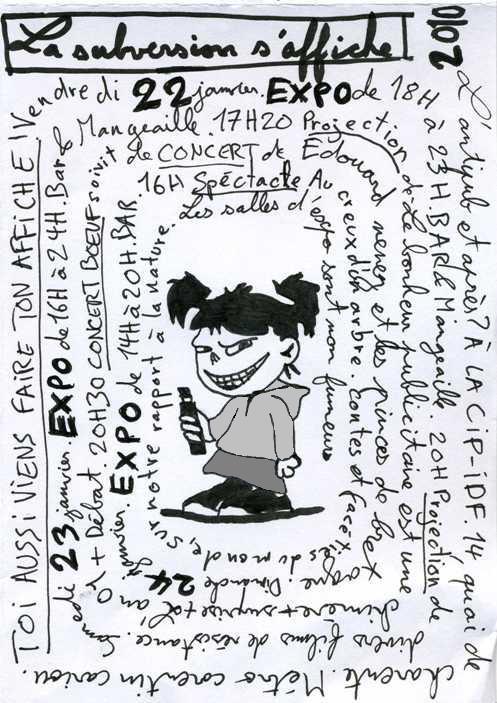 La subversion s'affiche
2010
L'antipub et après? à LA CIP-IDF. 14 quai de
charente. Métro corentin cariou.
TOI AUSSI VIENS FAIRE TON AFFICHE !
Vendredi 22 janvier. EXPO de 18H
à 23H. BAR & Mangeaille. 20H Projection de
divers films de résistance. Samedi
23 janvier EXPO de 16H à 24H. Bar &
Mangeaille. 17H20 Projection
de "Le bonheur publicitaire est une
chimère" + surprise + L'an
01 + Débat. 20H30 CONCERT BOEUF soivit
de CONCERT de Edouard
nenez et les princes de bret
agne. Dimanche 24 janvier.
EXPO de 14H à 20H. BAR.
16H Spéctacle Au
creux d'un arbre. contes et facé
ties du monde,
sur notre rapport à la nature.
Les salles d'expo sont non fumeurs